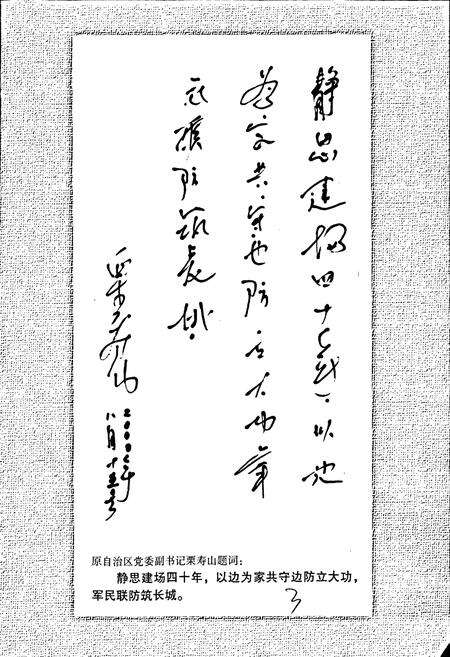 静思建场四十年，以边
为家共守边防立大功军
民联防筑长城。
栗寿山
八月十五号
原自治区党委副书记栗寿山题词：
静思建场四十年，以边为家共守边防立大功，
军民联防筑长城。
3